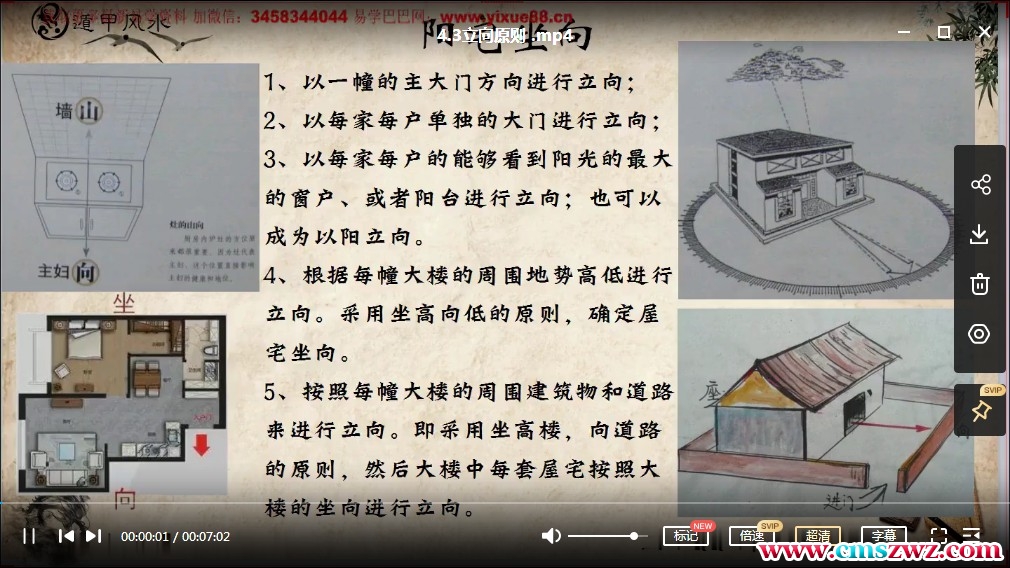 资料 加微信：3458344044 易学巴巴网：www.yixue88.cn
遁甲风水
阳宅坐向
4.3立向原则 .mp4
墙 山
灶的山向
主妇 向
坐
向
1、以一幢的主大门方向进行立向；
2、以每家每户单独的大门进行立向；
3、以每家每户的能够看到阳光的最大
的窗户、或者阳台进行立向；也可以
成为以阳立向。
4、根据每幢大楼的周围地势高低进行
立向。采用坐高向低的原则，确定屋
宅坐向。
5、按照每幢大楼的周围建筑物和道路
来进行立向。即采用坐高楼，向道路
的原则，然后大楼中每套屋宅按照大
楼的坐向进行立向。
座
进门
SVIP
00:00:01 / 00:07:02
标记 NEW
倍速 SVIP
超清
字幕
www.cmszwz.com